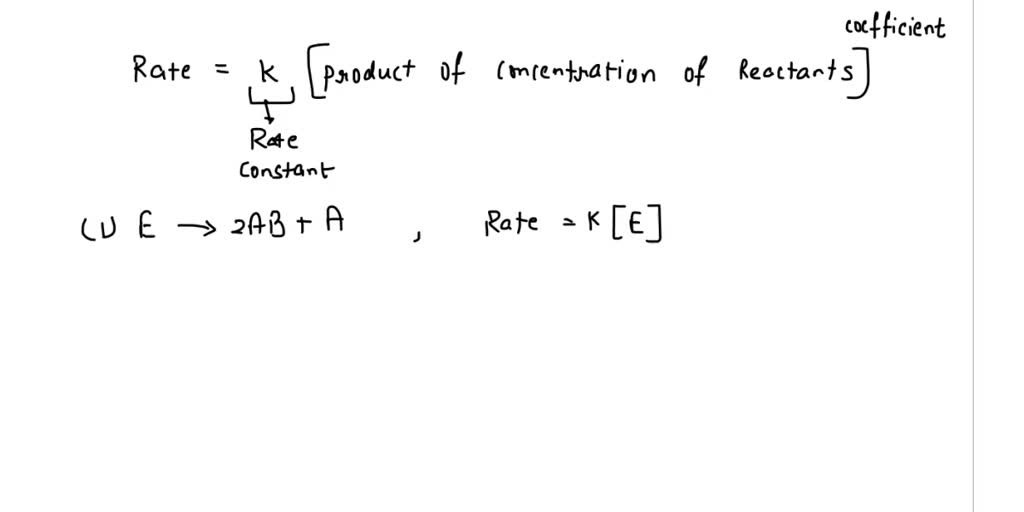 coefficient
Rate = k [product of concentration of Reactants]
Rate
Constant
(1) E → 2AB + A , Rate = K [E]